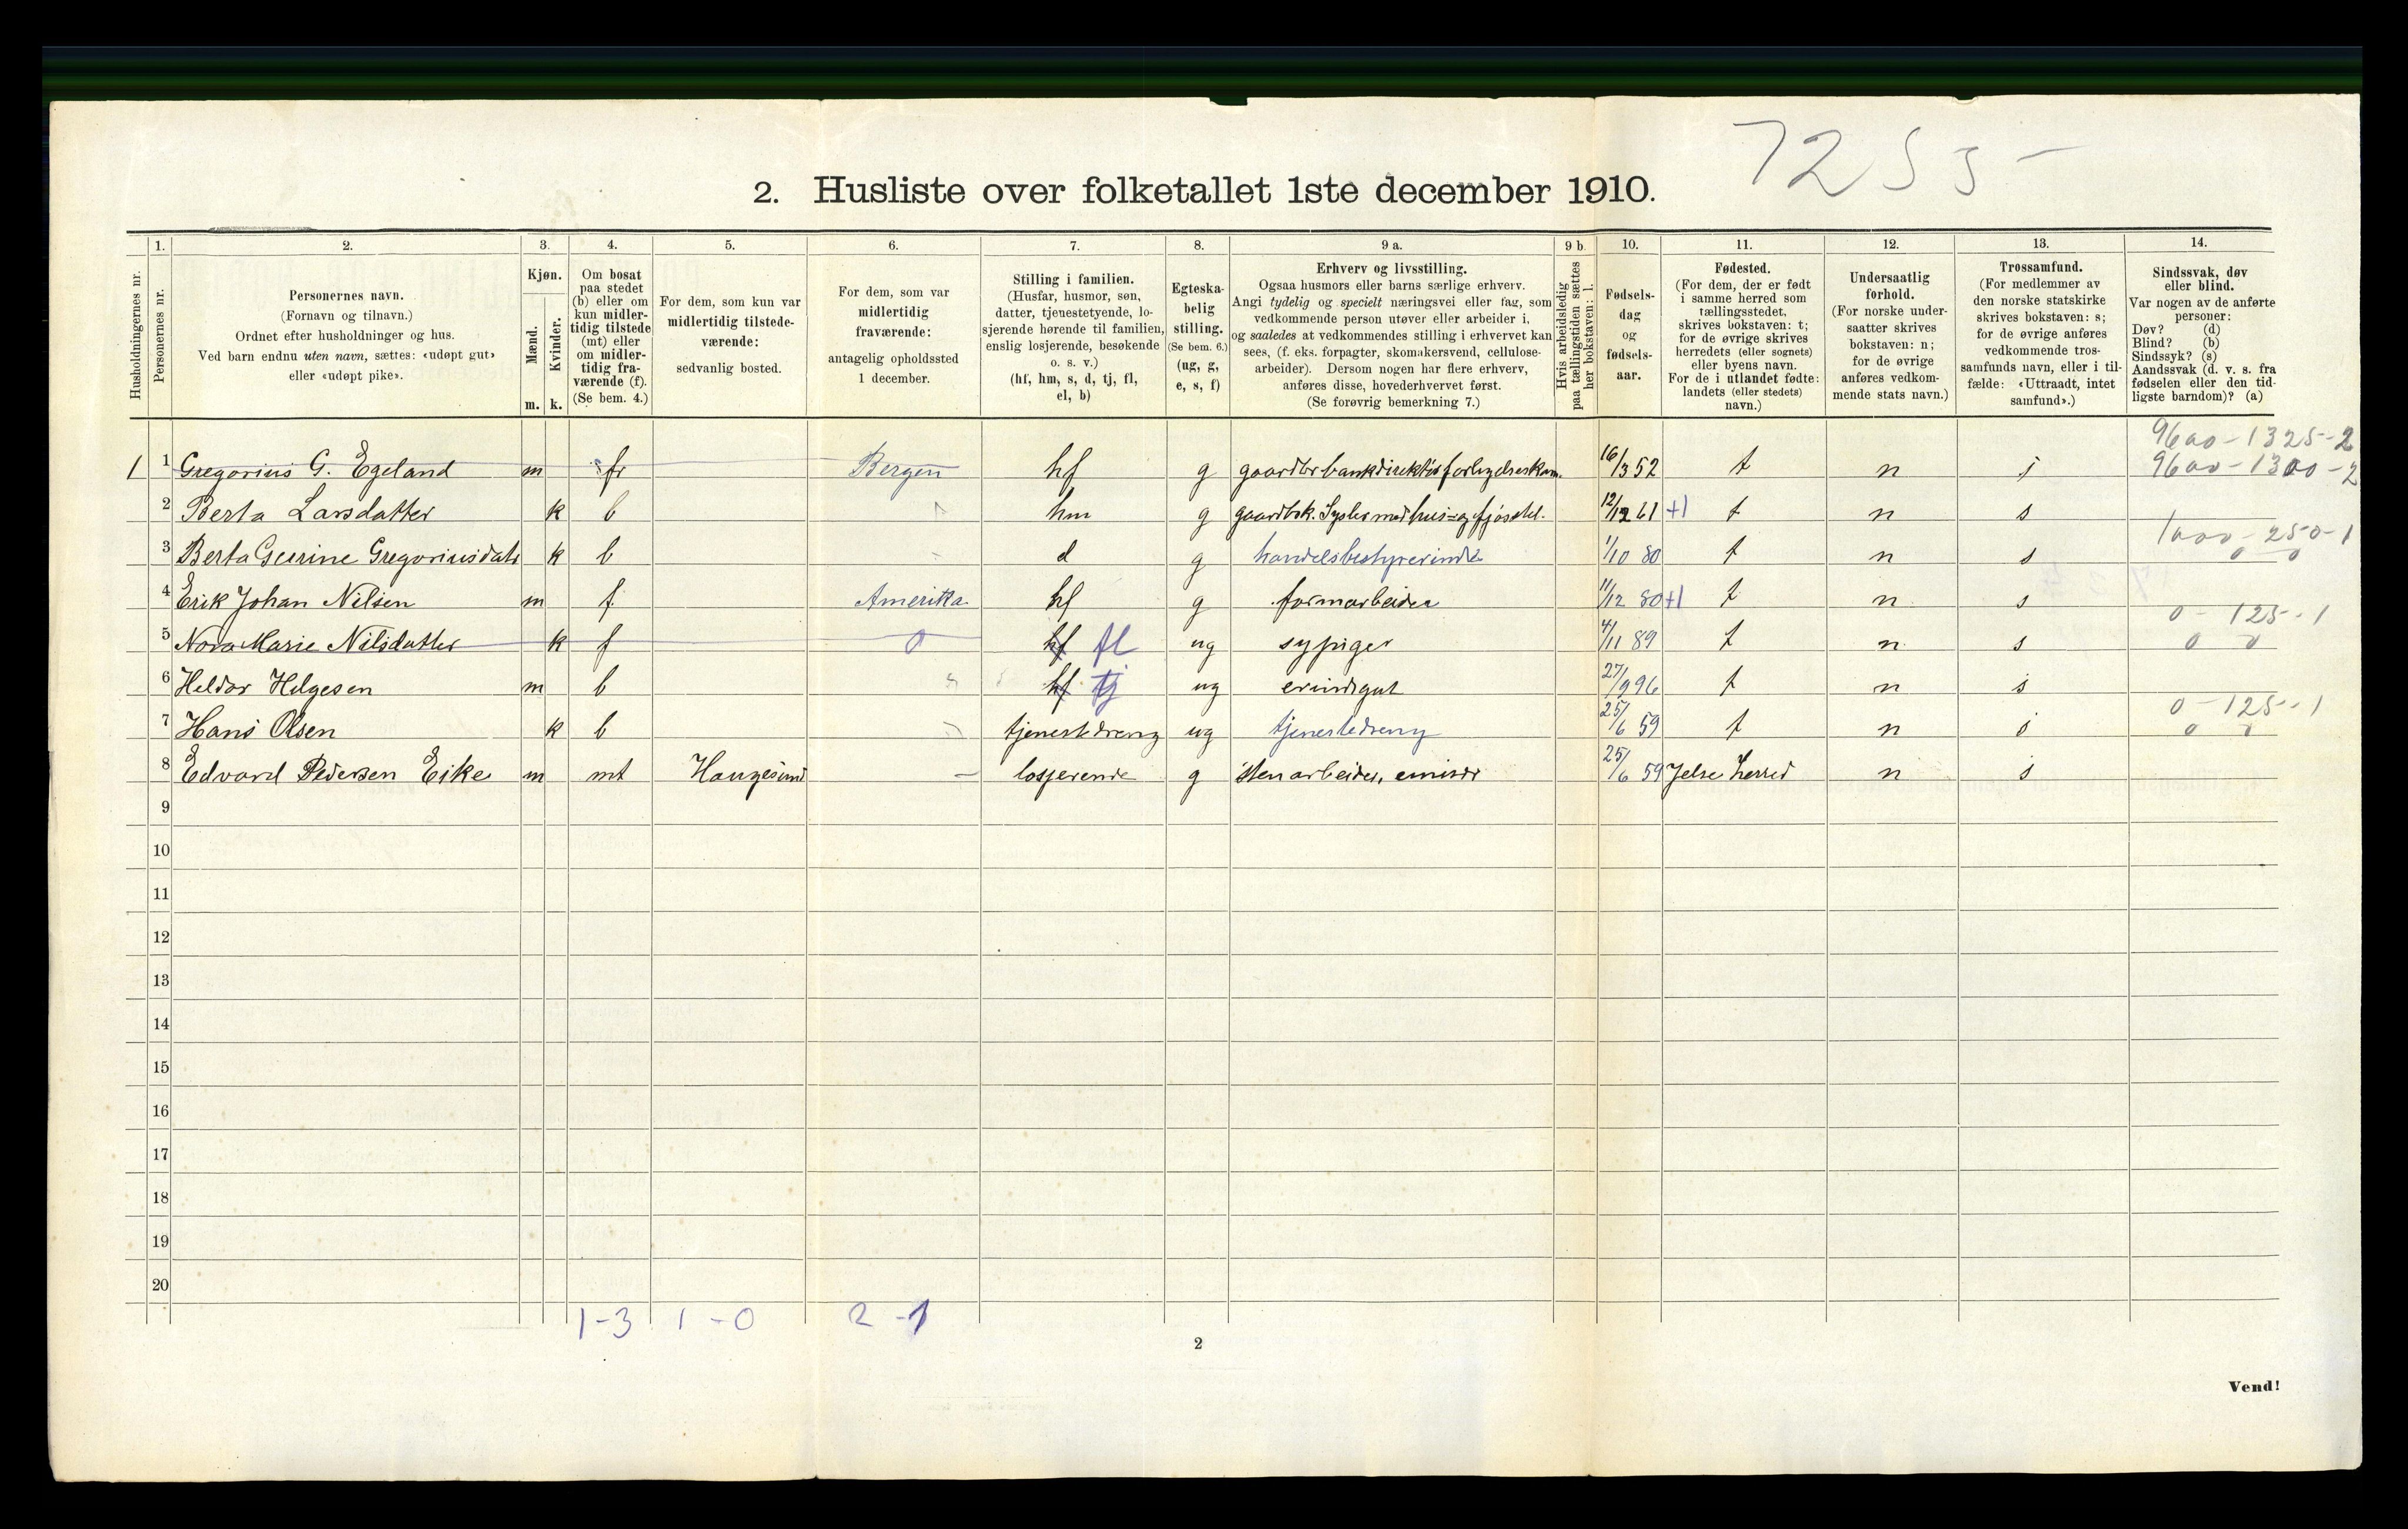 7255-
2. Husliste over folketallet 1ste december 1910.
Husholdningernes nr.
1.
Personernes nr.
2.
Personernes navn.
(Fornavn og tilnavn.)
Ordnet efter husholdninger og hus.
Ved barn endnu uten navn, sættes: «udøpt gut»
eller «udøpt pike».
3.
Kjøn.
Mænd.
Kvinder.
m. k.
4.
Om bosat
paa stedet
(b) eller om
kun midler-
tidig tilstede
(mt) eller
om midler-
tidig fra-
værende (f).
(Se bem. 4.)
5.
For dem, som kun var
midlertidig tilstede-
værende:
sedvanlig bosted.
6.
For dem, som var
midlertidig
fraværende:
antagelig opholdssted
1 december.
7.
Stilling i familien.
(Husfar, husmor, søn,
datter, tjenestetyende, lo-
sjerende hørende til familien,
enslig losjerende, besøkende
o. s. v.)
(hf, hm, s, d, tj, fl,
el, b)
8.
Egteska-
belig
stilling.
(Se bem. 6.)
(ug, g,
e, s, f)
9 a.
Erhverv og livsstilling.
Ogsaa husmors eller barns særlige erhverv.
Angi tydelig og specielt næringsvei eller fag, som
vedkommende person utøver eller arbeider i,
og saaledes at vedkommendes stilling i erhvervet kan
sees, (f. eks. forpagter, skomakersvend, cellulose-
arbeider). Dersom nogen har flere erhverv,
anføres disse, hovederhvervet først.
(Se forøvrig bemerkning 7.)
9 b.
Hvis arbeidsledig
paa tællingstiden sættes
her bokstaven: l.
10.
Fødsels-
dag
og
fødsels-
aar.
11.
Fødested.
(For dem, der er født
i samme herred som
tællingsstedet,
skrives bokstaven: t;
for de øvrige skrives
herredets (eller sognets)
eller byens navn.
For de i utlandet fødte:
landets (eller stedets)
navn.)
12.
Undersaatlig
forhold.
(For norske under-
saatter skrives
bokstaven: n;
for de øvrige
anføres vedkom-
mende stats navn.)
13.
Trossamfund.
(For medlemmer av
den norske statskirke
skrives bokstaven: s;
for de øvrige anføres
vedkommende tros-
samfunds navn, eller i til-
fælde: «Uttraadt, intet
samfund».)
14.
Sindssvak, døv
eller blind.
Var nogen av de anførte
personer:
Døv? (d)
Blind? (b)
Sindssyk? (s)
Aandssvak (d. v. s. fra
fødselen eller den tid-
ligste barndom)? (a)
9600-1325-2
1 1 Gregorius G. Egeland m fr Bergen hf g 16/3 52 t n s 9600-1300-2
2 Berta Larsdatter k b hm g gaardbrk. Sysler med hus- og fjøsstel. 12/12 61 +1 t n s
1000-250-1
3 Berta Geurine Gregoriusdatr k b d g handelsbestyrerinde 1/10 80 t n s 0 0
4 Erik Johan Nilsen m f Amerika hf g farmarbeider 11/12 80 +1 t n s
0-125-1
5 Nora Marie Nilsdatter k f 0 hf fl ug sypige 4/11 89 t n s 0 0
6 Heldor Helgesen m b hf tj ug erindsgut 27/9 96 t n s
0-125-1
7 Hans Olsen k b tjenestedreng ug tjenestedreng 25/6 59 t n s 0 0
8 Edvard Pedersen Eike m mt Haugesund - losjerende g stenarbeider, emisær 25/6 59 Jelse herred n s
9
10
11
12
13
14
15
16
17
18
19
20
1-3 1-0 2-1
2
Vend!